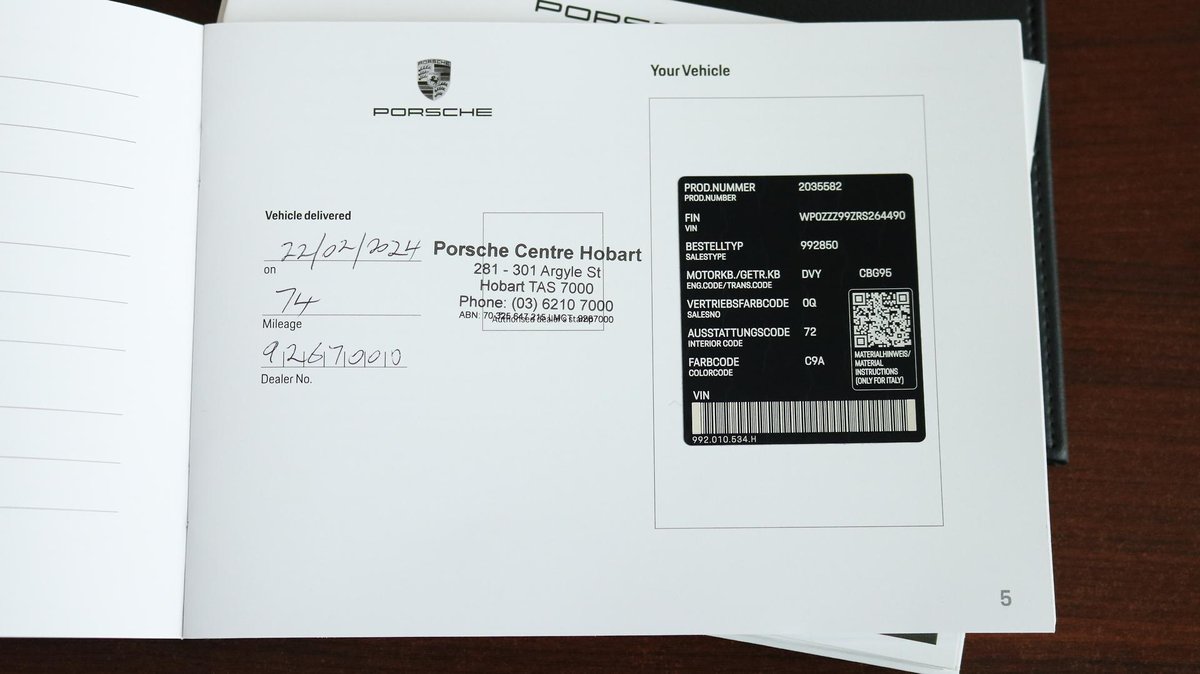 PORSCHE
PORSCHE
PORSCHE
Your Vehicle
Vehicle delivered
22/02/2024
on
74
Mileage
9267000
Dealer No.
Porsche Centre Hobart
281 - 301 Argyle St
Hobart TAS 7000
Phone: (03) 6210 7000
ABN: 70 325 647 215 LMCT: 9267000
Authorised dealer's stamp
PROD.NUMMER 2035582
PROD.NUMBER
FIN WP0ZZZ99ZRS264490
VIN
BESTELLTYP 992850
SALESTYPE
MOTORKB./GETR.KB DVY CBG95
ENG.CODE/TRANS.CODE
VERTRIEBSFARBCODE 0Q
SALESNO
AUSSTATTUNGSCODE 72
INTERIOR CODE
FARBCODE C9A
COLORCODE
MATERIALHINWEIS/
MATERIAL
INSTRUCTIONS
(ONLY FOR ITALY)
VIN
992.010.534.H
5